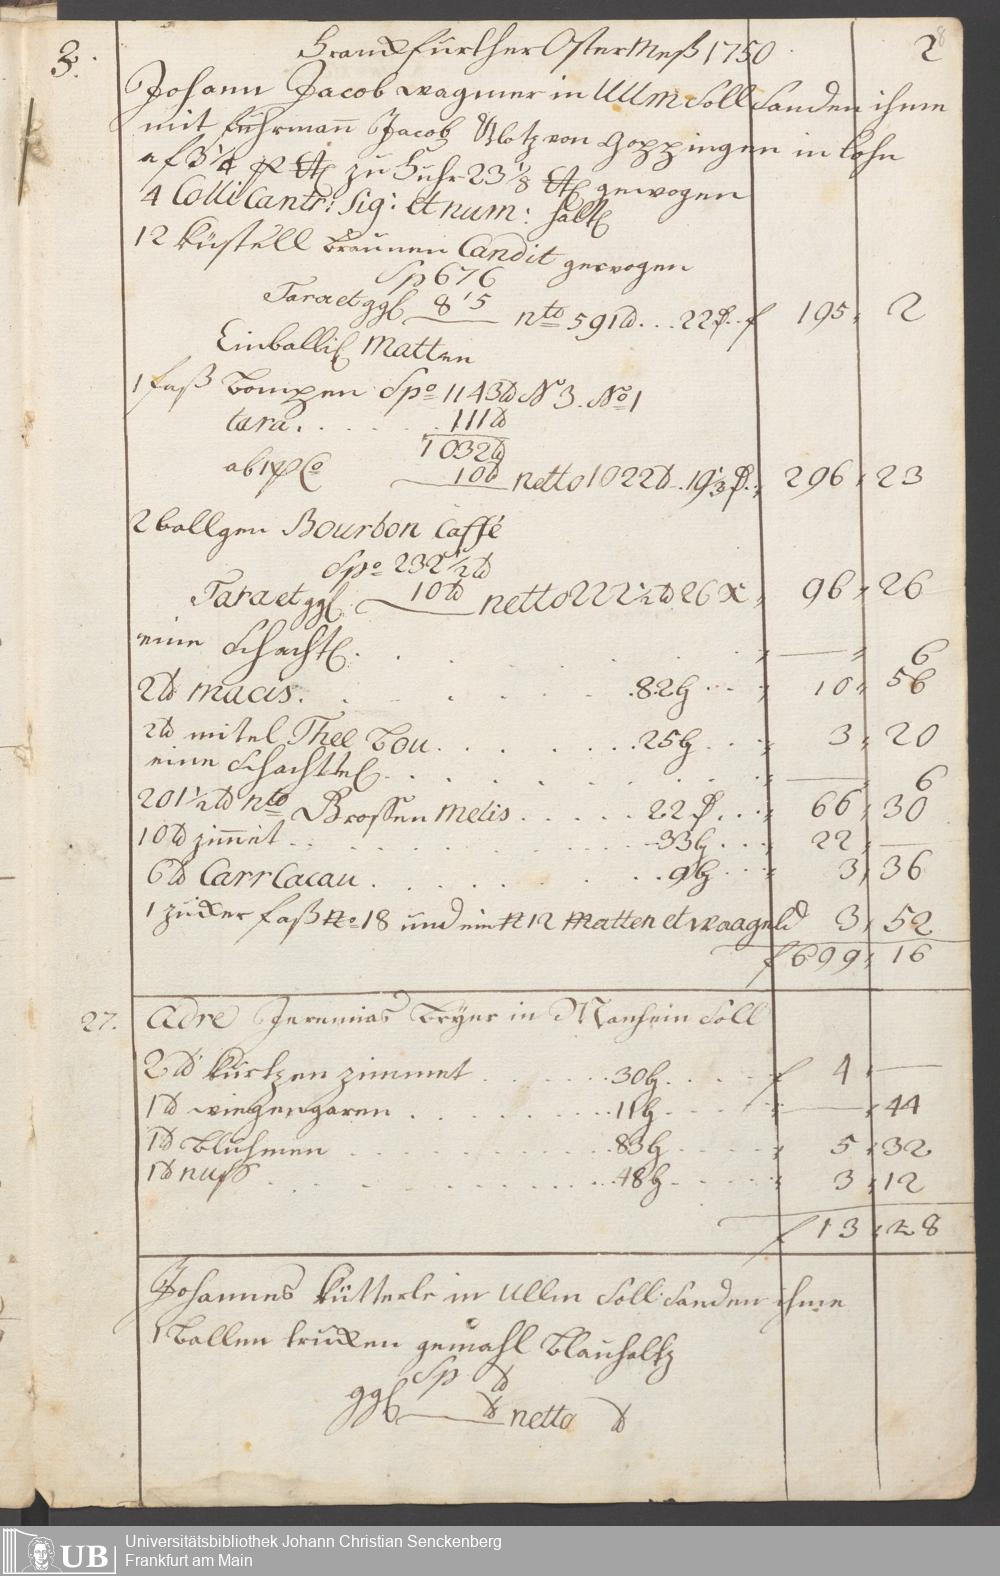 Franckfurther Oster Meß 1750
2
8
3.
Johann Jacob wagner in Ullm Soll Sanden ihme
mit fuhrmañ Jacob Klotz von Goppingen in lohn
zu Fuhr 23 1/8 gewogen
4 Colli Cantr: Sig: et num: halt
12 küstell braunen Candit gewogen
Sp 676
Tara et ggl 85 nto 591 lb . . 22 f 195 2
Einballi Matten
1 faß Lompen Spo 1143 lb No 3. No 1
tara . . . . 111 lb
1032 lb
ab 1 p Co 10 lb netto 1022 lb . 19 1/3 296 23
2 ballgen Bourbon Caffé
Spo 232 1/2 lb
Tara et ggl 10 lb netto 222 1/2 lb 26 x 96 26
eine Schachtl . . . . — 6
2 lb macis . . . . 82 . . . 10 56
2 lb mitel Thee Bou . . . . 25 . . . 3 20
eine Schachttel . . . . — 6
201 1/2 lb nto Grossen Melis . . . . 22 . . . 66 30
10 lb zim̃et . . . . 33 . . . 22 —
6 lb Carr Cacau . . . . 9 . . . 3 36
1 zucker faß No 18 und ein N 12 Matten et waageld 3 52
f 699 16
27.
Adre Jeremias Breyer in Manheim Soll
2 lb kurtzen zimmet . . . . 30 . . . f 4 —
1 lb . . . . 11 . . . — 44
1 lb Bluhmen . . . . 83 . . . 5 32
1 lb nuß . . . . 48 . . . 3 12
f 13 28
Johannes kütterle in Ullm Soll Sanden ihme
1 Ballen trucken gemahl Blauholtz
Sp lb
ggl lb netto lb
UB
Universitätsbibliothek Johann Christian Senckenberg
Frankfurt am Main